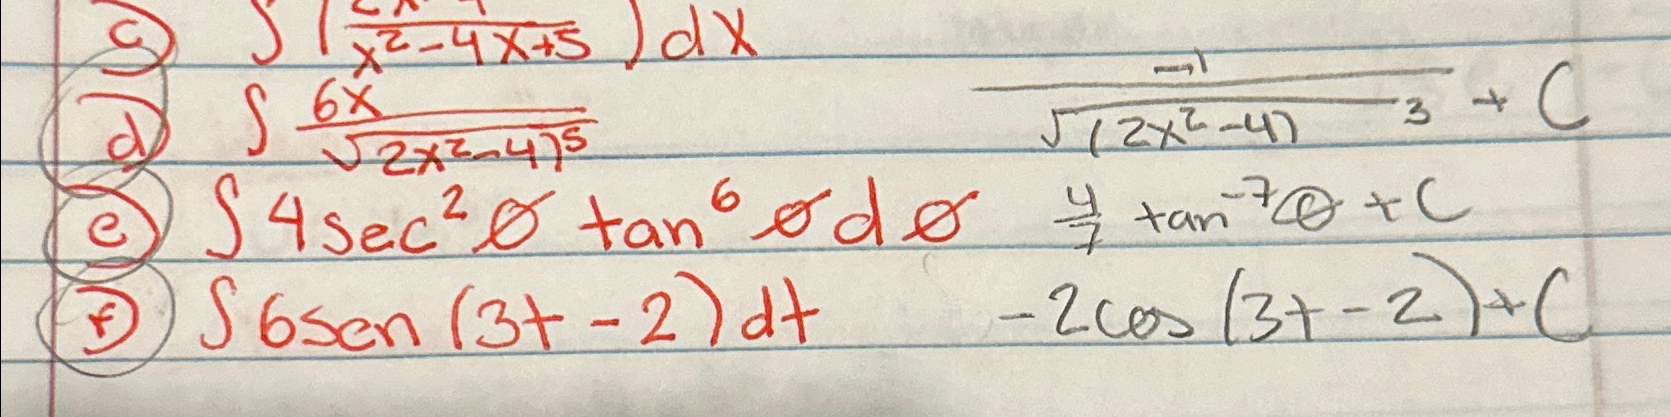 c) ∫ ( / x²-4x+5 ) dx
d) ∫ 6x / √2x²-4)⁵ -1 / √(2x²-4) ³ + C
e) ∫ 4 sec² Ø tan⁶ Ø d Ø 4/7 tan⁻⁷ θ + C
f) ∫ 6 sen (3t - 2) dt -2 cos (3t - 2) + C